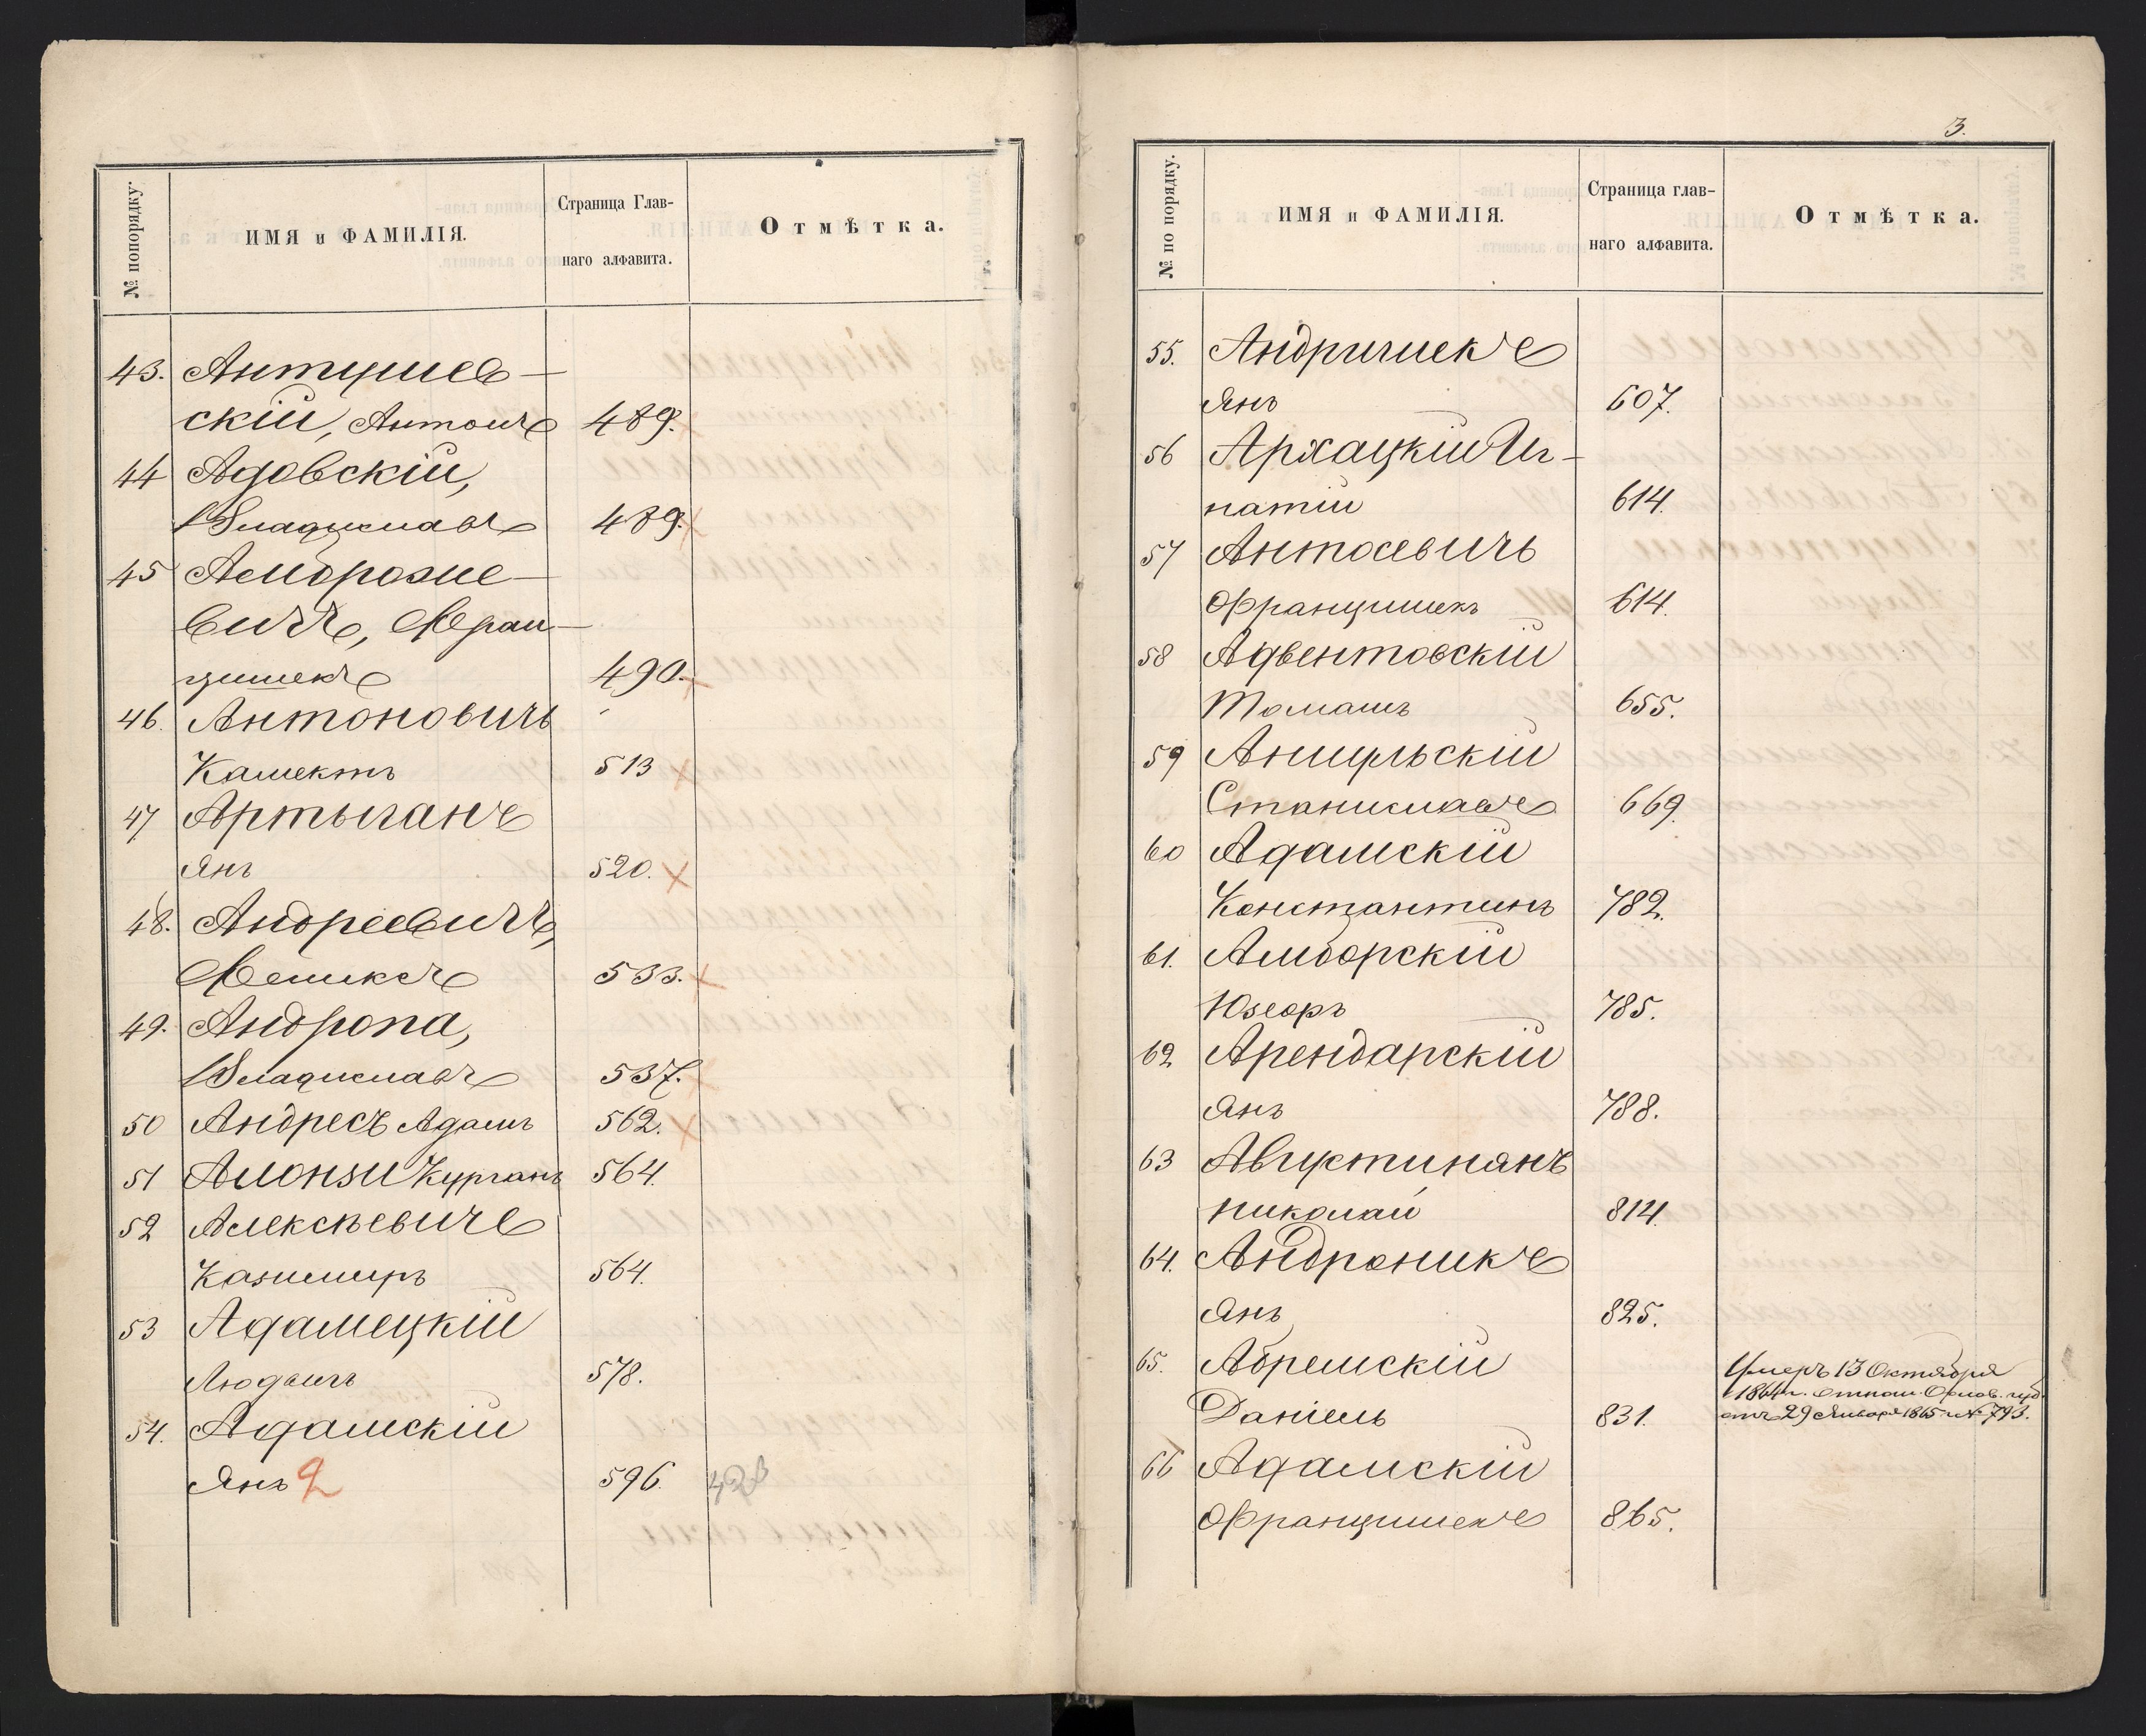 № попорядку.
ИМЯ и ФАМИЛІЯ.
Страница Глав-
наго алфавита.
Отмѣтка.
43. Антушев-
скій, Антонъ 489.
44 Адовскій,
Владиславъ 489.
45 Амброже-
вичъ, Фран-
цишекъ 490.
46. Антоновичъ
513
47 Артыганъ
Янъ 520.
48. Андреевичъ,
Феликсъ 533.
49. Андропа,
Владиславъ 537.
50 Андресъ Адамъ 562.
51 564.
52 Алексѣевичъ
Казимиръ 564.
53 Адамецкій
578.
54. Адамскій
Янъ 2 596. 423
3.
№ по порядку.
ИМЯ и ФАМИЛІЯ.
Страница глав-
наго алфавита.
Отмѣтка.
55. Андричекъ
Янъ 607.
56 Архацкій Иг-
натій 614.
57 Антосевичъ
Францишекъ 614.
58 Адвентовскій
Томашъ 655.
59
Станиславъ 669.
60 Адамскій
Константинъ 782.
61. Амборскій
Юзефъ 785.
62 Арендарскій
Янъ 788.
63 Августинянъ
Николай 814.
64. Андроникъ
Янъ 825.
65. Абремскій
Умеръ 13 Октября
1864 г. отнош. губ.
Даніель 831. отъ 29 Января 1865 г. № 793.
66 Адамскій
Францишекъ 865.